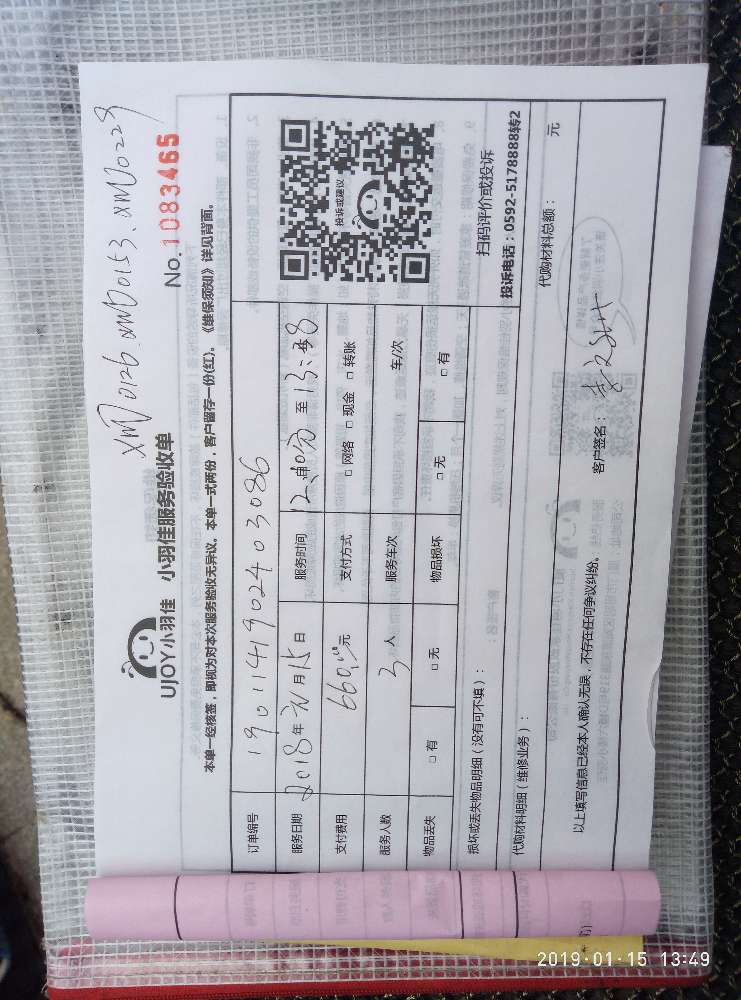 XMJ0126. XMJ0153. XMJ0229
No. 1083465
UJOY小羽佳 小羽佳服务验收单
本单一经核签，即视为对本次服务验收无异议。本单一式两份，客户留存一份(红)。《维保须知》详见背面。
订单编号 19011419024 03086
服务日期 2018年元月15日 服务时间 至13:
支付费用 660.00元 支付方式 □网络 □现金 □转账
服务人数 3人 服务车次 车/次
物品丢失 □有 □无 物品损坏 □无 □有
投诉或建议
扫码评价或投诉
投诉电话：0592-5178888转2
损坏或丢失物品明细（没有可不填）：
代购材料明细（维修业务）：
代购材料总额： 元
以上填写信息已经本人确认无误，不存在任何争议纠纷。
客户签名：
2019-01-15 13:49